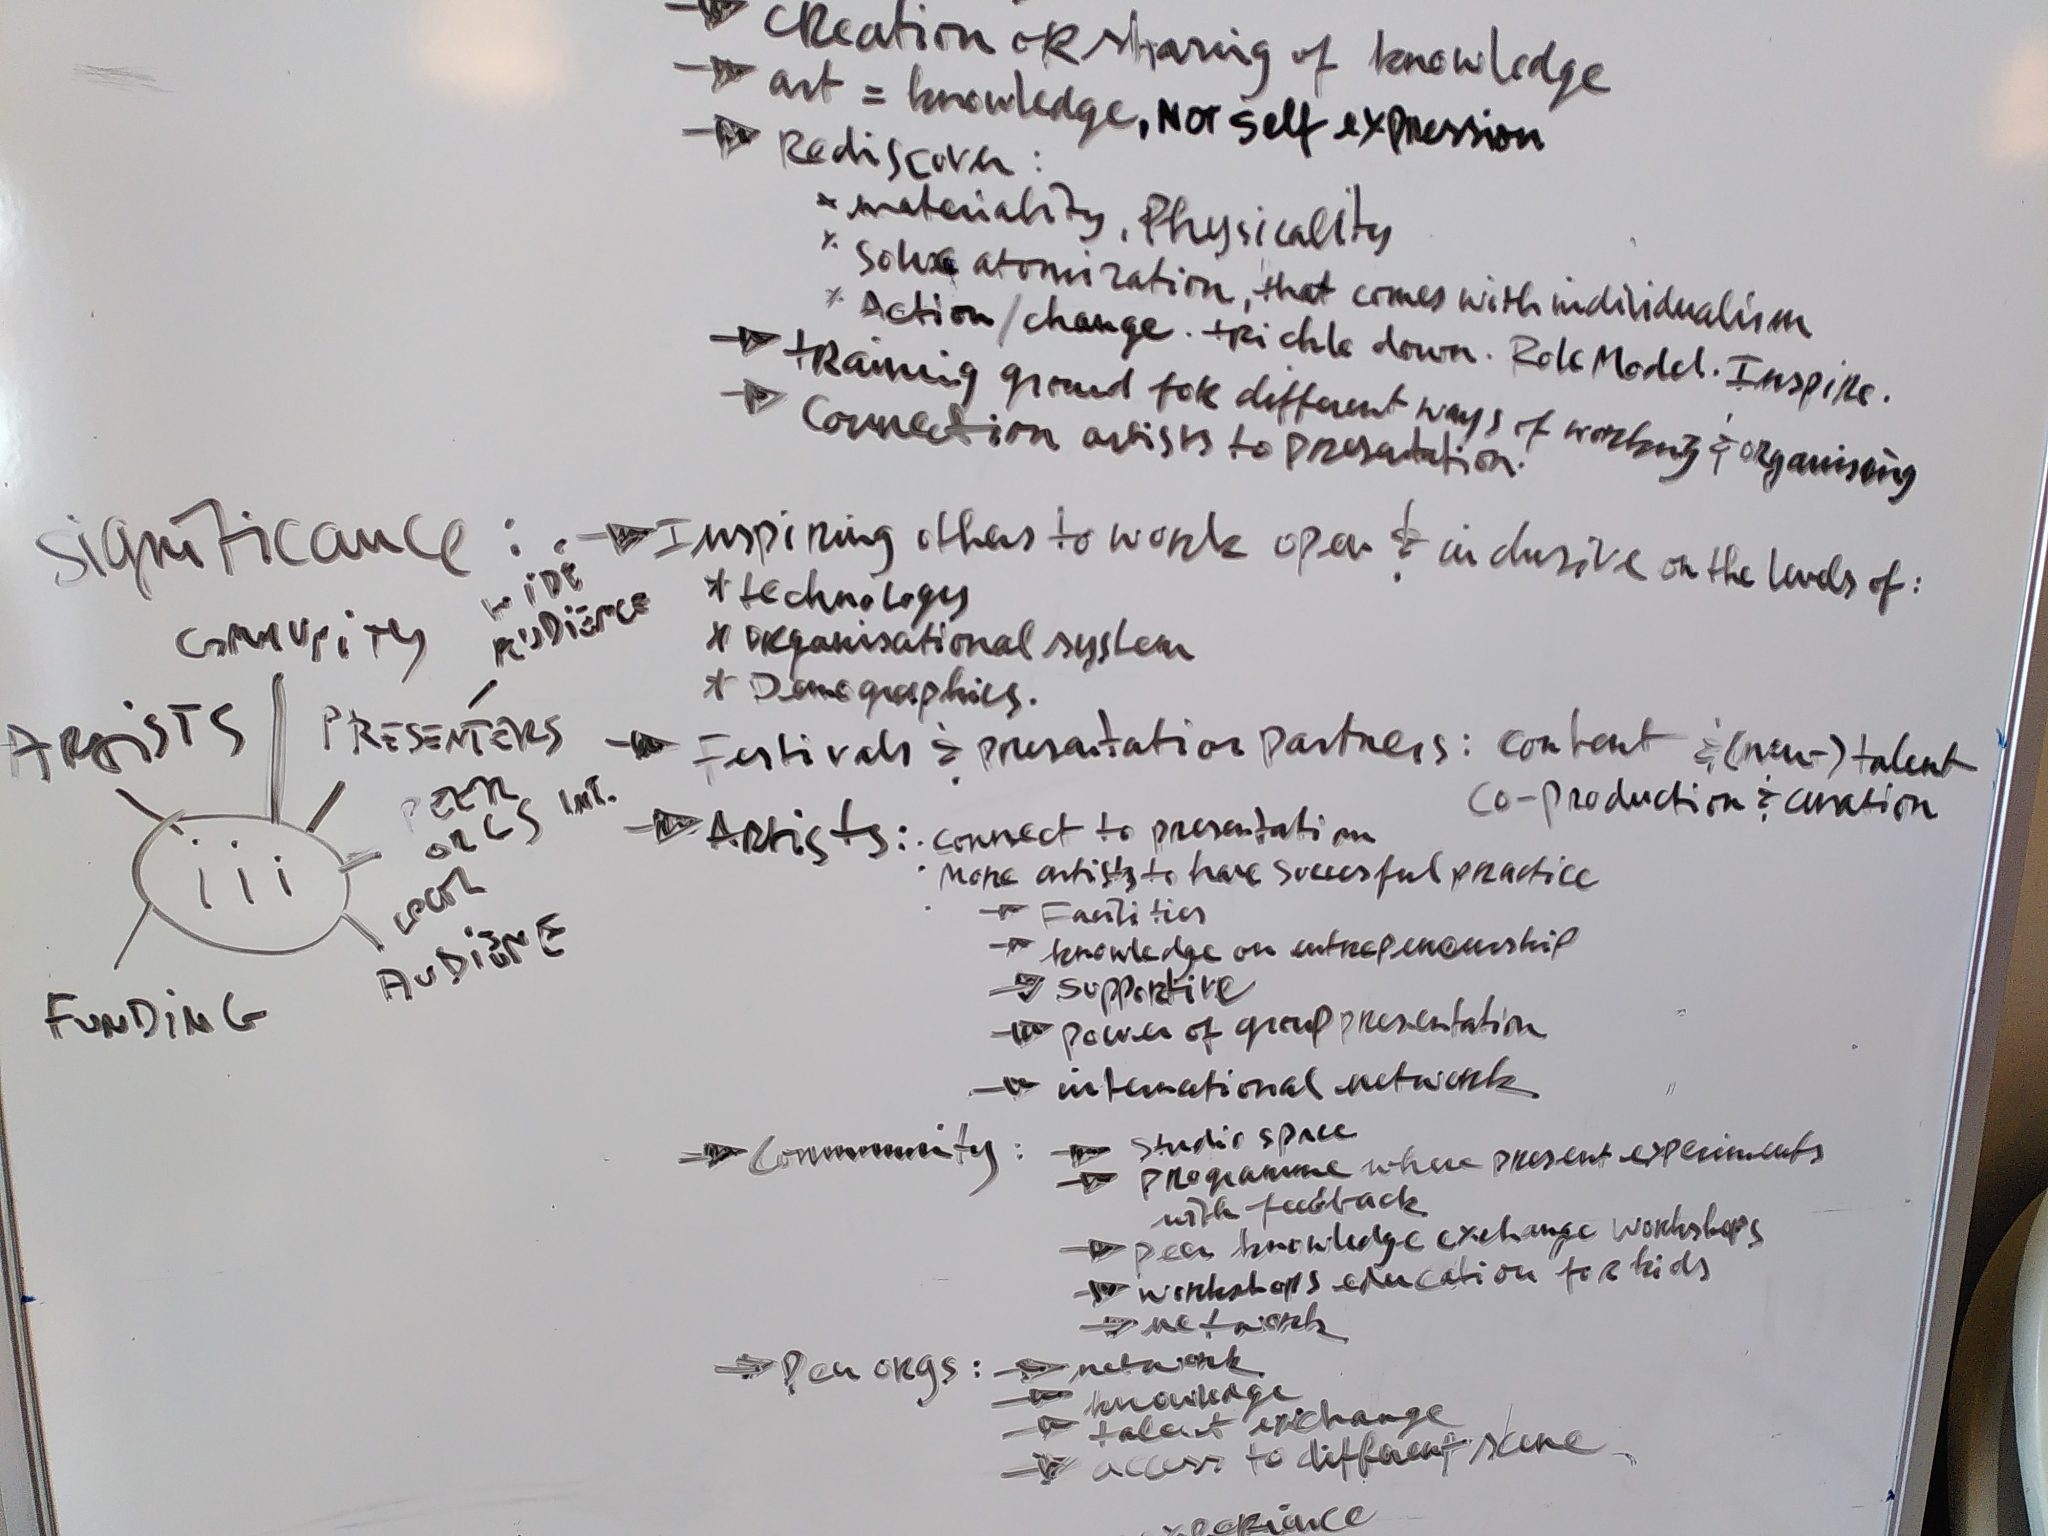 → Creation or sharing of knowledge
→ art = knowledge, Not self expression
→ Rediscover:
* materiality, Physicality
* Solve atomization, that comes with individualism
* Action/change. trickle down. Role Model. Inspire.
→ training ground for different ways of working & organising
→ Connection artists to presentation.
Significance:
→ Inspiring others to work open & inclusive on the levels of:
* technology
* organisational system
* Demographics.
→ Festivals & presentation partners: content & (new-) talent
co-production & curation
→ Artists: · connect to presentation
· More artists to have succesful practice
→ Facilities
→ knowledge on entrepeneurship
→ supportive
→ power of group presentation
→ international network
→ Community: → studio space
→ programme where present experiments
with feedback
→ peer knowledge exchange workshops
→ workshops education for kids
→ network
→ Peer orgs: → network
→ knowledge
→ talent exchange
→ access to different scene
WIDE
AUDIENCE
ARTISTS
PRESENTERS
PEER
ORGS INT.
iii
LOCAL
FUNDING